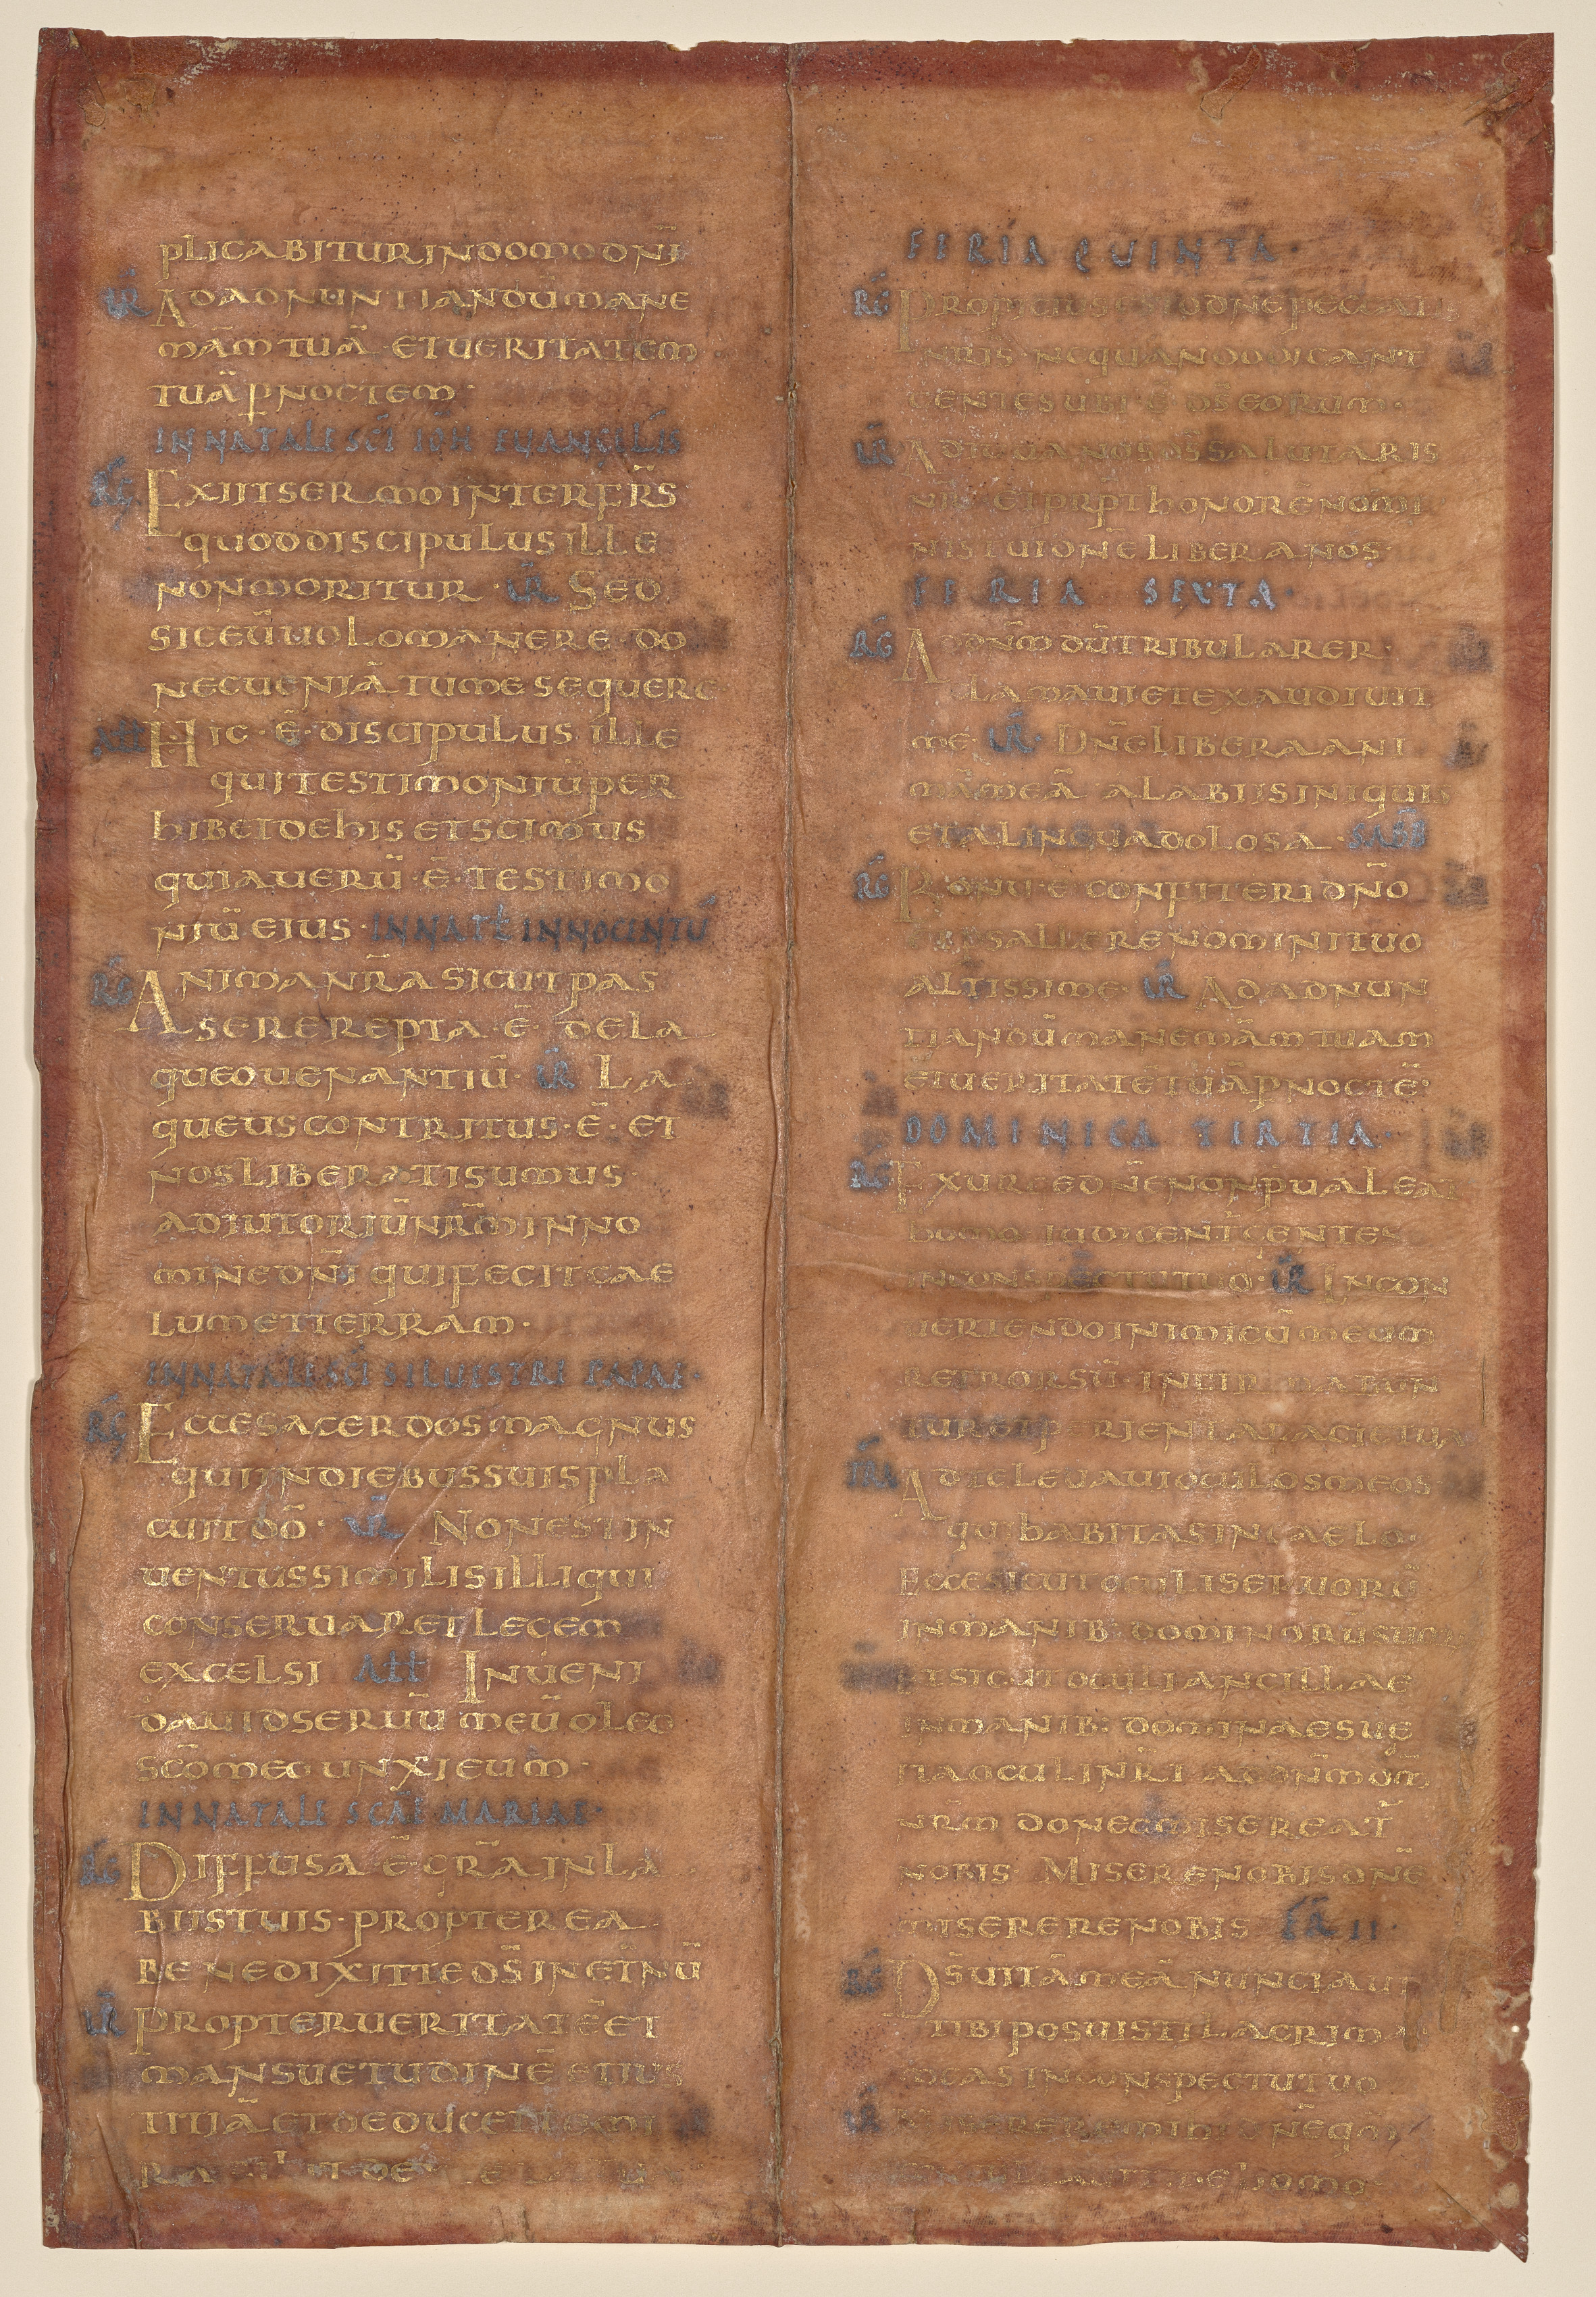 plicabitur in domo dnī
ūR Ad adnuntiandū mane
mām tuā · et ueritatem
tuā ꝑ noctem ·
IN NATALE SCĪ IOH EUANGELIS
RḠ Exiit sermo inter frs̄
quod discipulus ille
non moritur · ūR Sed
sic eū uolo manere · do
nec ueniā tu me sequere
Aɫɫ Hic · ē · discipulus ille
qui testimoniū per
hibet de his et scimus
quia uerū · ē · testimo
niū eius · IN NATĒ INNOCENTŪ
RḠ Anima nr̄a sicut pas
ser erepta · ē · de la
queo uenantiū · ūR La
queus contritus · ē · et
nos liberati sumus ·
adiutoriū nrm̄ in no
mine dnī qui fecit cae
lum et terram ·
IN NATALE SCĪ SILUESTRI PAPAE ·
RḠ Ecce sacerdos magnus
qui in diebus suis pla
cuit dō · ūR Non est in
uentus similis illi qui
conseruaret legem
excelsi Aɫɫ Inueni
dauid seruū meū oleo
scō meo unxi eum ·
IN NATALE SCĀE MARIAE ·
RḠ Diffusa · ē · grā in la
biis tuis · propterea
benedixit te ds̄ in etn̄ū
ūR Propter ueritatē et
mansuetudinē et ius
titiā et deducet te mi
FERIA QUINTA ·
RḠ Propicius esto dnē peccat
nris · nequando dicant
gentes ubi · ē · ds̄ eorum ·
ūR Adiuua nos ds̄ salutaris
nr̄ · et prpt honore nomi
nis tui dnē libera nos ·
FERIA SEXTA ·
RḠ Ad dnm̄ dū tribularer ·
clamaui et exaudiuit
me · ūR · Dnē libera ani
mā meā a labiis iniquis
et a lingua dolosa · SABB
RḠ Bonū · ē · confiteri dnō
et psallere nomini tuo
altissime · ūR Ad adnun
tiandū mane mām tuam
et ueritatē tuā ꝑ noctē ·
DOMINICA TERTIA ·
RḠ Exurge dnē non pualeat
homo iudicent̄ gentes
in conspectu tuo · ūR In con
uertendo inimicū meum
retrorsū · infirmabun
tur et perient a facie tua
TRA Ad te leuaui oculos meos
qui habitas in caelo ·
Ecce sicut oculi seruorū
in manib · dominorū suo
et sicut oculi ancillae
in manib : dominae sue
ita oculi nr̄i ad dnm̄ dm̄
nrm̄ donec misereat̄
nobis Misere nobis dnē
miserere nobis FR II ·
RḠ Ds̄ uitā meā nunciaui
tibi posuisti lacrima
meas in conspectu tuo
ūR Miserere mihi dnē qm̄